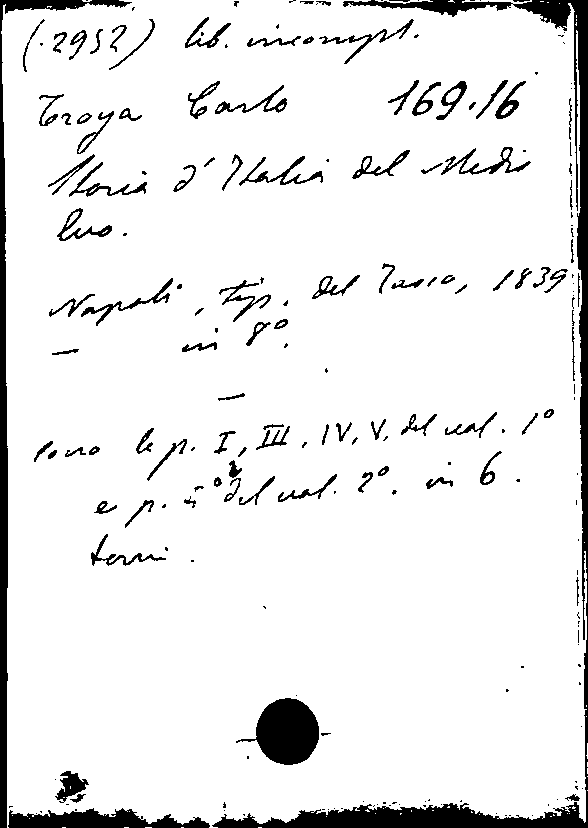 (.2952) lib. incompl.
Troya Carlo 169.16
Storia d'Italia del Medio
Evo.
Napoli, tip. del Tasso, 1839
— in 8º.
—
sono le p. I, III, IV, V, del vol. 1º
e p. del vol. 2º. in 6
tomi.